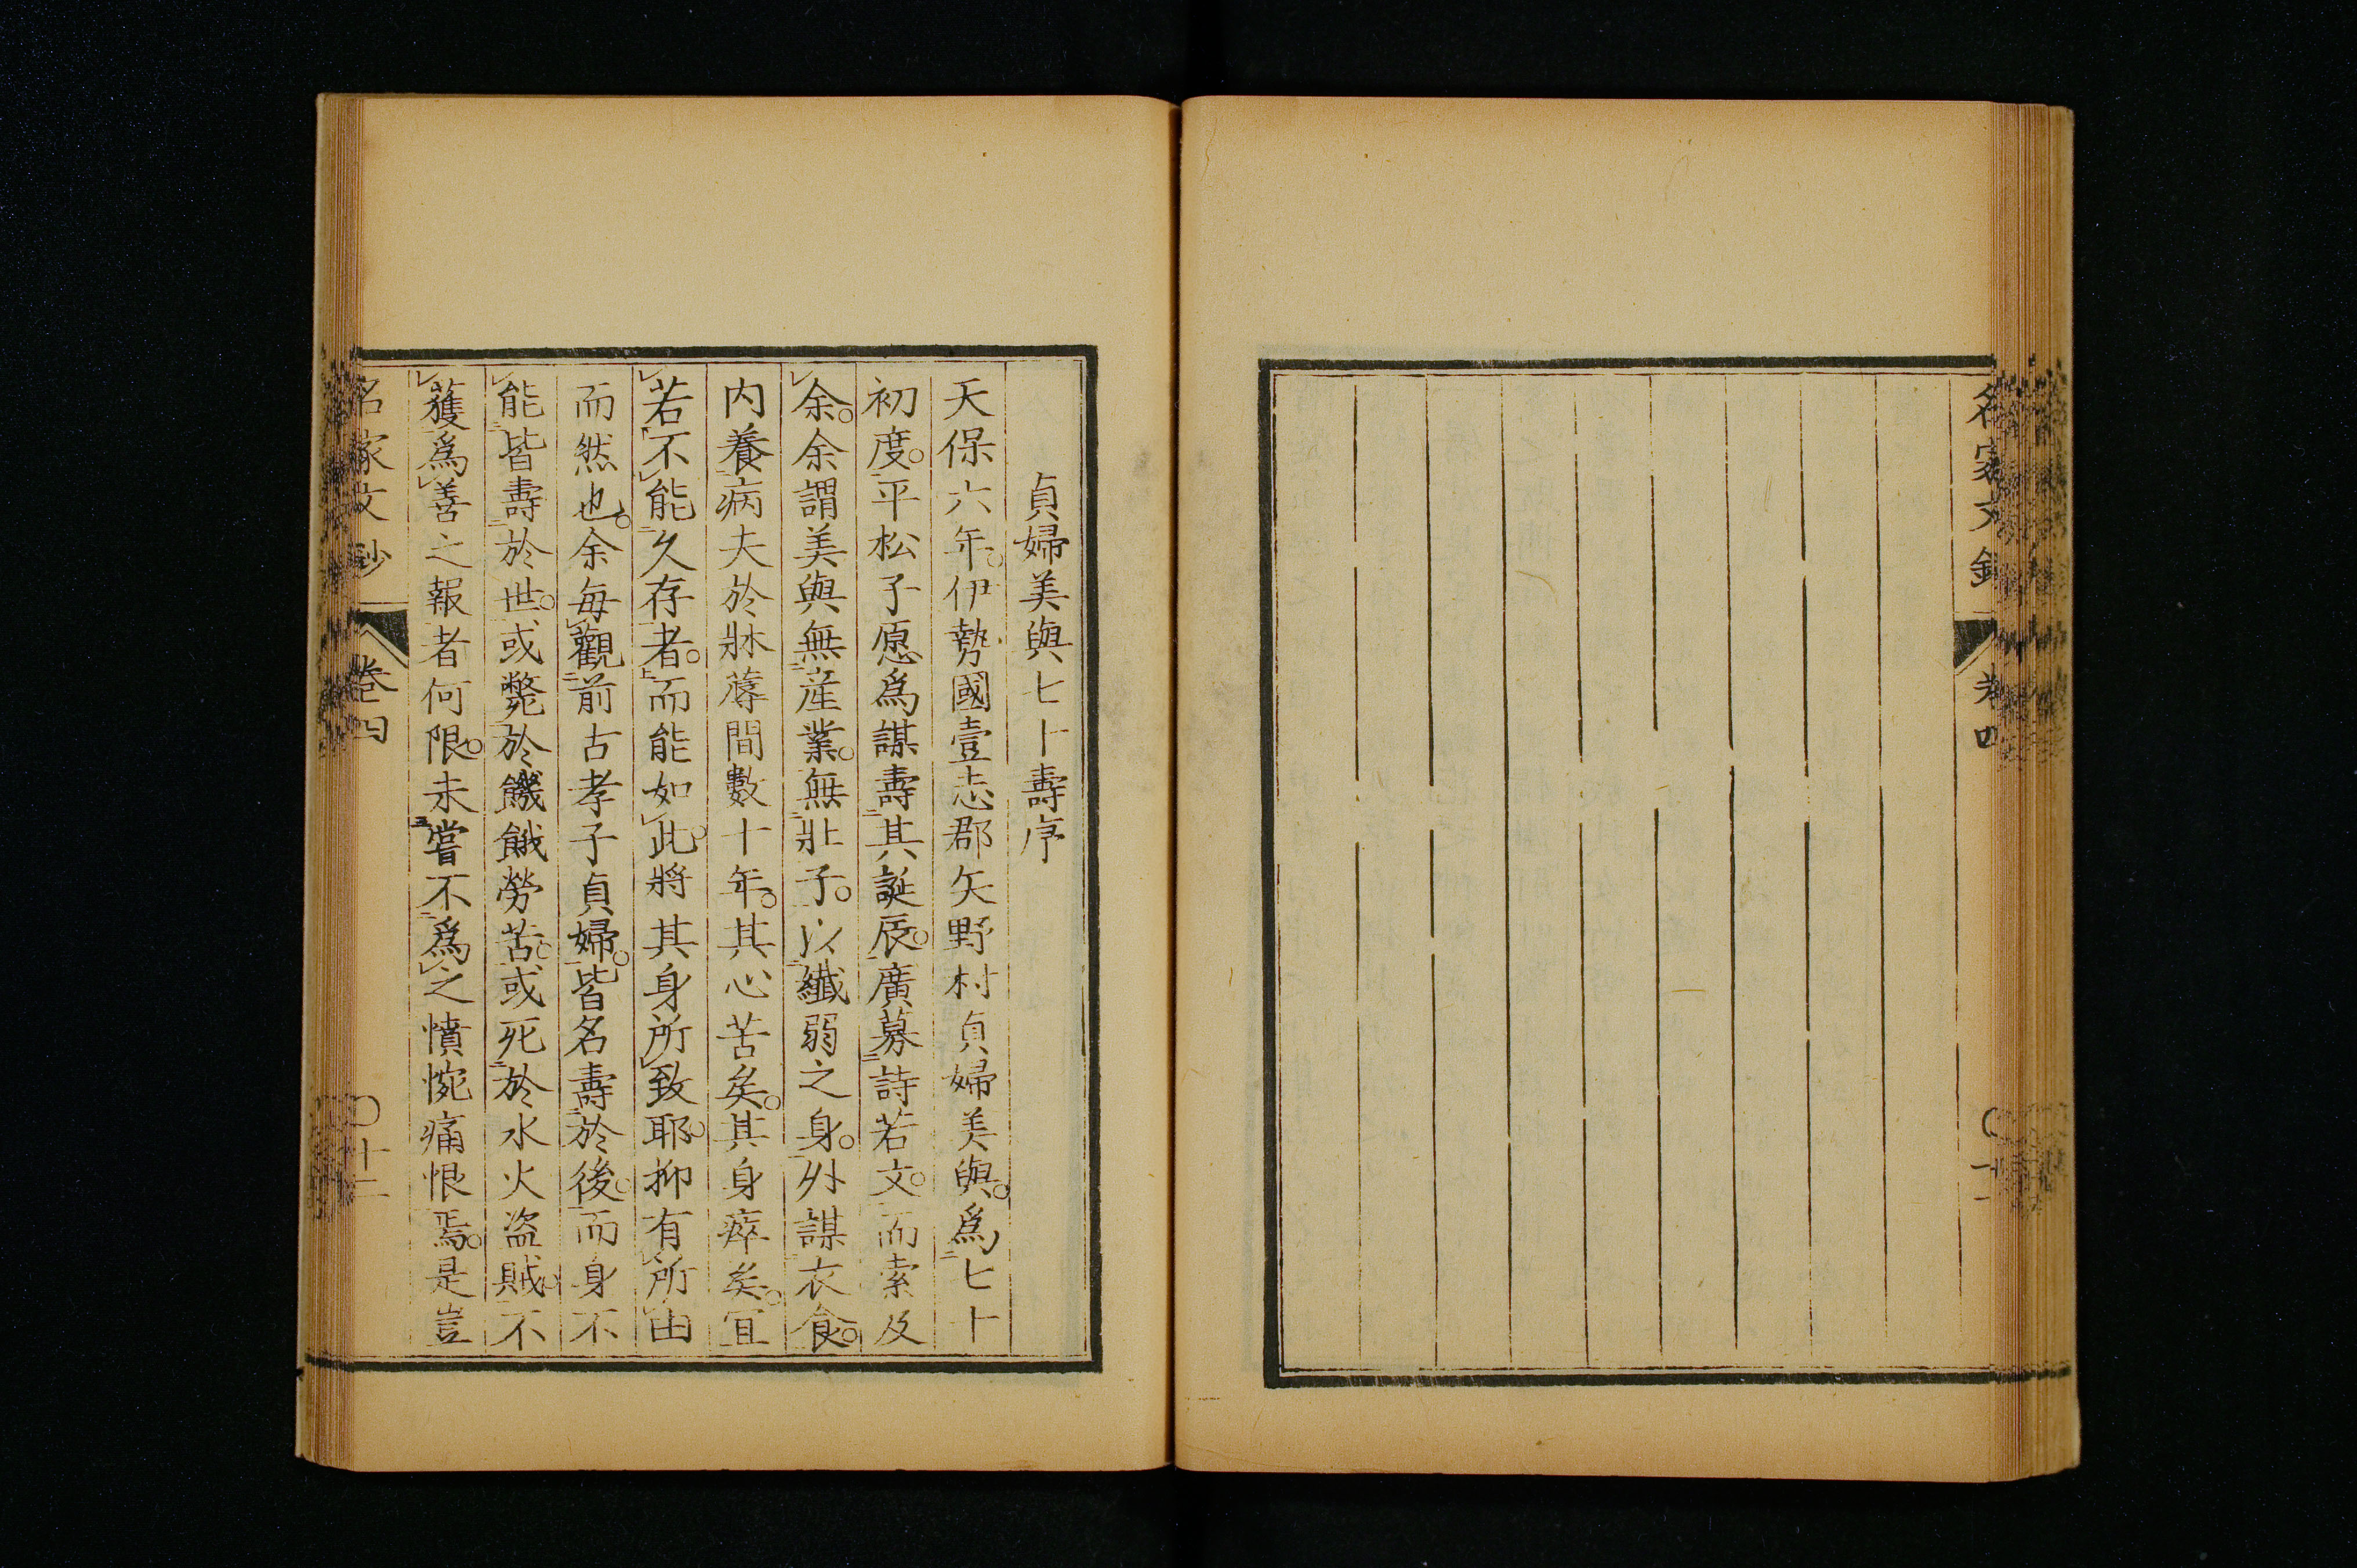 名家文鈔
卷四
貞婦美與七十壽序
天保六年。伊勢國壹志郡矢野村貞婦美與。爲七十
初度。平松子愿爲謀壽其誕辰。廣募詩若文。而索及
余。余謂美與無産業。無壯子。以纖弱之身。外謀衣食。
内養病夫於牀蓐間數十年。其心苦矣。其身瘁矣。宜
若不能久存者。而能如此。將其身所致耶。抑有所由
而然也。余每觀前古孝子貞婦。皆名壽於後。而身不
能皆壽於世。或斃於饑餓勞苦。或死於水火盗賊。不
獲爲善之報者何限。未嘗不爲之憤惋痛恨焉。是豈
名家文鈔
卷四
〇十二